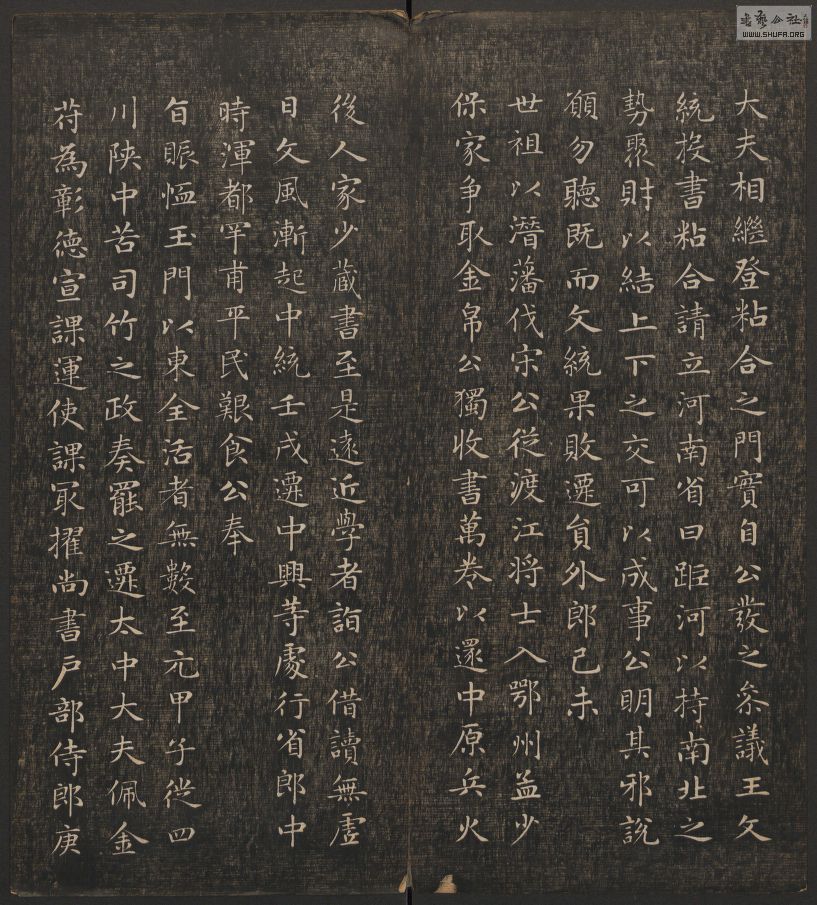 大夫相繼登粘合之門實自公發之叅議王文
統投書粘合請立河南省曰距河以持南北之
勢聚財以結上下之交可以成事公明其邪說
願勿聽既而文統果敗遷貟外郎己未
世祖以潛藩伐宋公從渡江將士入鄂州孟少
保家爭取金帛公獨收書萬卷以還中原兵火
後人家少蔵書至是遠近學者詣公借讀無虛
日文風漸起中統壬戌遷中興等處行省郎中
時渾都罕甫平民艱食公奉
旨賑恤玉門以東全活者無數至元甲子從四
川陝中苦司竹之政奏罷之遷太中大夫佩金
符為彰德宣課運使課冣擢尚書戶部侍郎庚
書藝公社
WWW.SHUFA.ORG